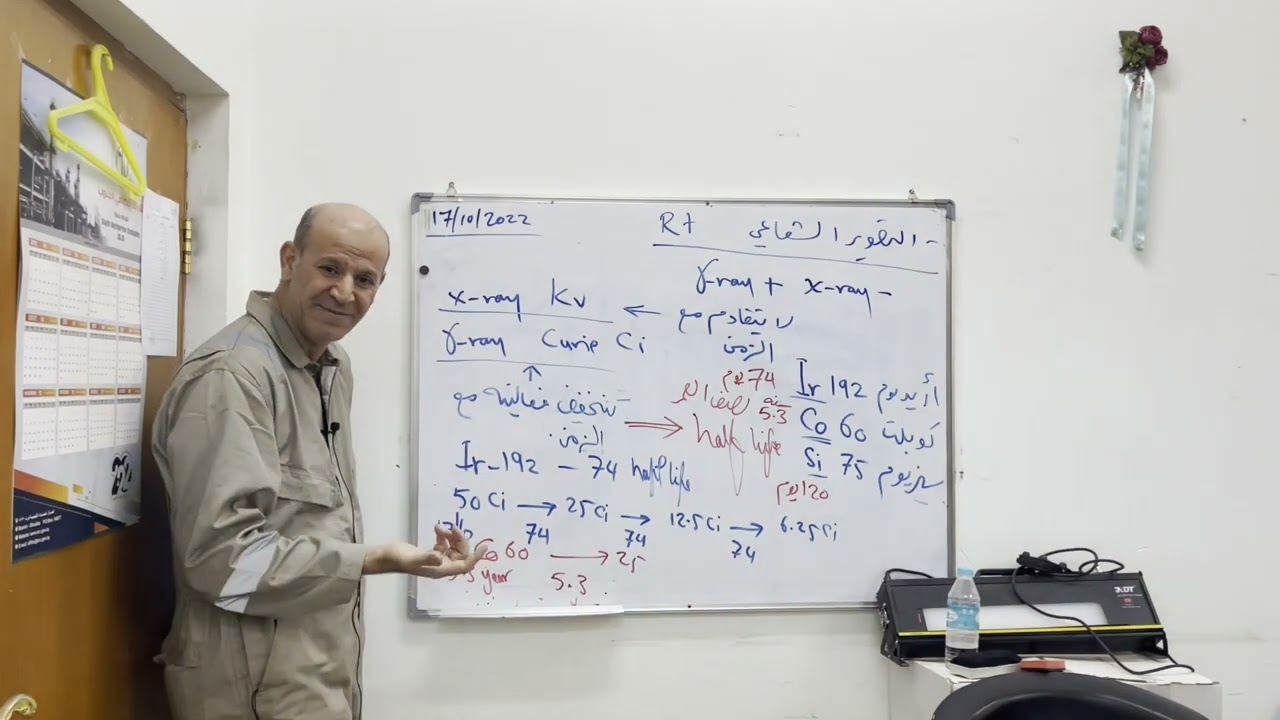 17/10/2022
- التصوير الشعاعي Rt
γ-ray + x-ray -
x-ray Kv ←
لا يتقادم مع
الزمن
γ-ray Curie Ci
↑
تنخفض فعاليته مع
الزمن
74 يوم
نصف العمر
5.3 سنة
half life
أريديوم Ir 192
كوبلت Co 60
سيزيوم Si 75
120 يوم
Ir-192 - 74 half life
50 Ci → 25 Ci → 12.5 Ci → 6.25 Ci
74 74 74
Co 60 → 25
year 5.3
ADT